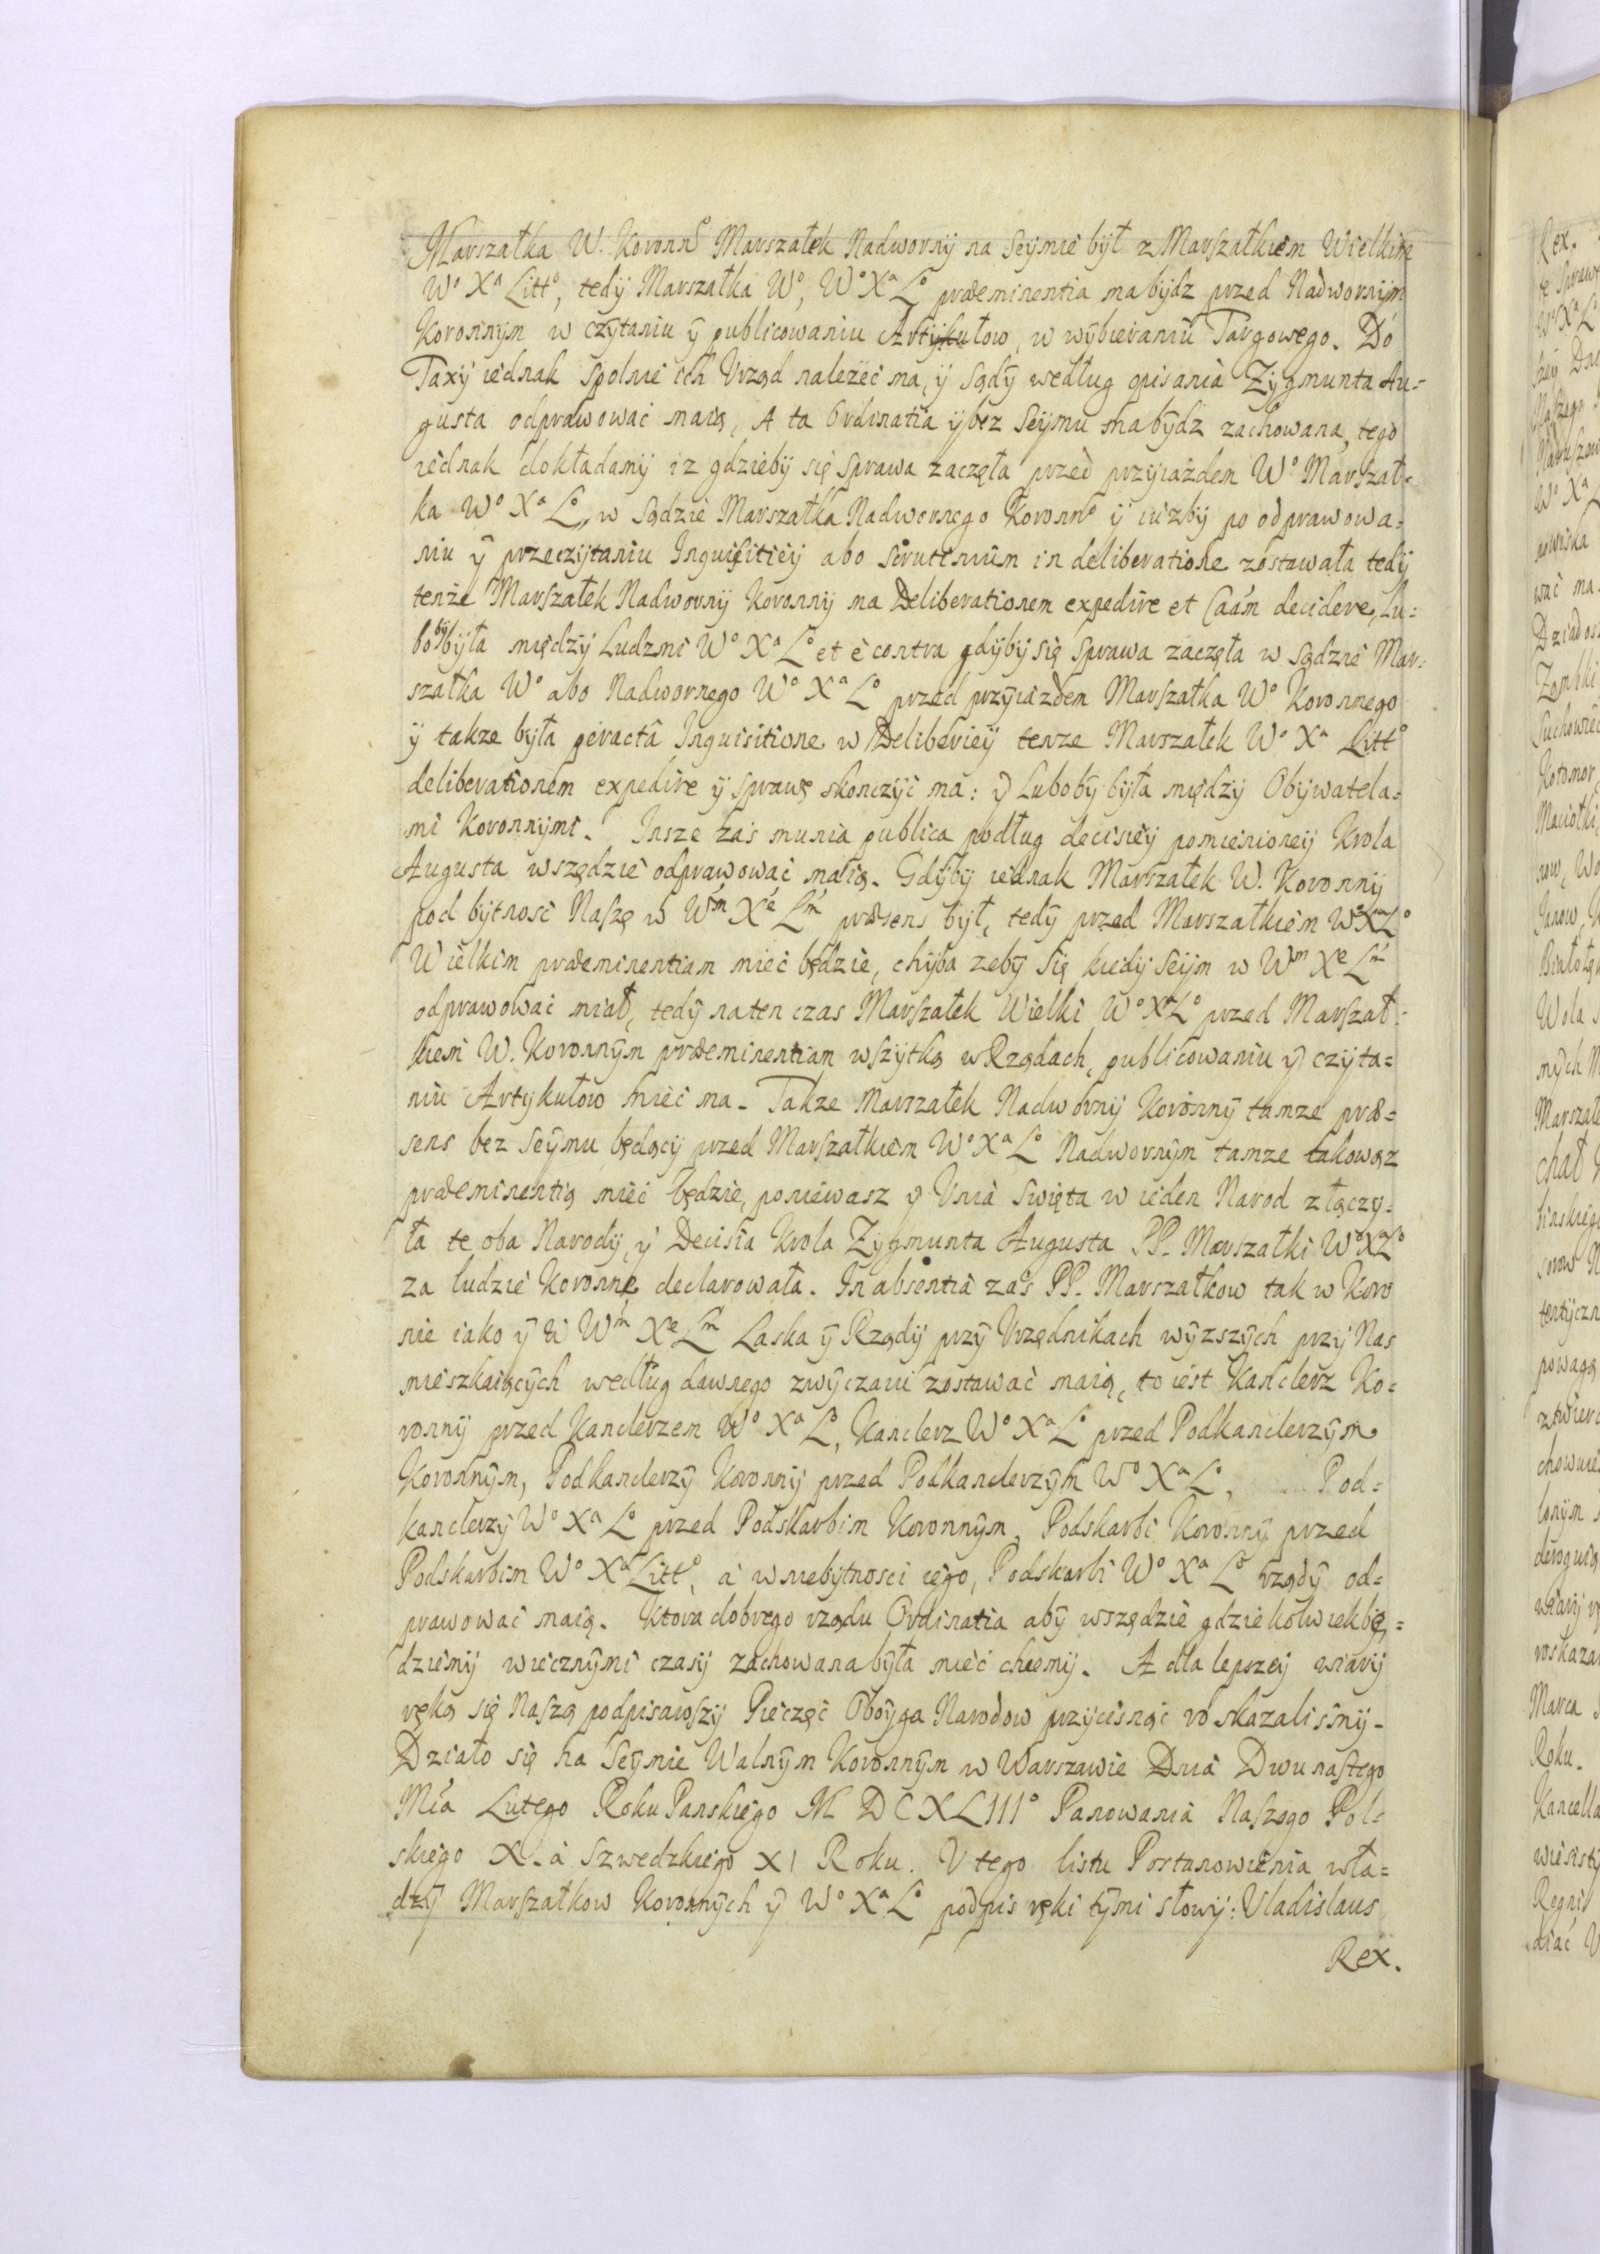 Marszałka W. Koronn° Marszałek Nadworny na Seymie był z Marszałkiem Wielkim
W° Xᵃ Litt°, tedy Marszałka W°, W° Xᵃ L° præeminentia ma bydz przed Nadwornym
Koronnym w czytaniu ÿ publicowaniu Artykułow, w wybieraniu Targowego. Do
Taxy iednak spolnie ich Vrząd należeć ma, ÿ sądy według opisania Zygmunta Au-
gusta odprawować maią, A ta Ordinatia ÿ bez Seymu ma bydz zachowana, tego
iednak dokładamy iz gdzieby się sprawa zaczęła przed przyiazdem W° Marszał-
ka W° Xᵃ L°, w sądzie Marszałka Nadwornego Koronn° ÿ iuzby po odprawowa-
niu ÿ przeczytaniu Inquisitiey abo scrutinium in deliberatione zostawała tedy
tenże Marszałek Nadworny Koronny ma Deliberationem expedire et Caám decidere, Lu-
boby była między Ludzmi W° Xᵃ L° et è contra gdyby się sprawa zaczęła w sądzie Mar-
szałka W° abo Nadwornego W° Xᵃ L° przed przyiazdem Marszałka W° Koronnego
ÿ takze była peractâ Inquisitione w Deliberiey tenze Marszałek W° Xᵃ Litt°
deliberationem expedire ÿ sprawę skonczyć ma: ÿ Luboby była między Obywatela-
mi Koronnymi. Insze zaś munia publica podług decisiey pomienioney Krola
Augusta wszędzie odprawować maią. Gdyby iednak Marszałek W. Koronny
pod bytnosć Naszę w Wᵐ Xᵉ Lᵐ præsens był, tedy przed Marszałkiem W°XᵃL°
Wielkim præeminentiam mieć będzie, chyba zeby się kiedy Seym w Wᵐ Xᵉ Lᵐ
odprawować miał, tedy naten czas Marszałek Wielki W°XᵃL° przed Marszał-
kiem W. Koronnym præeminentiam wszytką w Rządach, publicowaniu ÿ czyta-
niu Artykułow mieć ma. Takze Marszałek Nadworny Koronny tamze præ-
sens bez Seymu będący przed Marszałkiem W° Xᵃ L° Nadwornym tamze takowąz
præeminentią mieć będzie, poniewasz ÿ Vnia Swięta w ieden Narod złączy-
ła te oba Narody, ÿ Decisia Krola Zygmunta Augusta PP. Marszałki W°XᵃL°
za ludzie Koronne declarowała. In absentia zaś PP. Marszałkow tak w Koro
nie iako ÿ w Wᵐ Xᵉ Lᵐ Laska ÿ Rządy przy Vrzędnikach wyzszych przy Nas
mieszkaiących według dawnego zwyczaiu zostawać maią, to iest Kanclerz Ko-
ronny przed Kanclerzem W° Xᵃ L°, Kanclerz W° Xᵃ L° przed Podkanclerzym
Koronnym, Podkanclerzy Koronny przed Podkanclerzym W° Xᵃ L°, Pod-
kanclerzy W° Xᵃ L° przed Podskarbim Koronnym, Podskarbi Koronny przed
Podskarbim W° Xᵃ Litt°, a w niebytnosci iego, Podskarbi W° Xᵃ L° rządy od-
prawować maią. Ktora dobrego rządu Ordinatia aby wszędzie gdziekolwiek bę-
dziemy wiecznymi czasy zachowana była mieć chcemy. A dla lepszey wiary
ręką się Naszą podpisawszy Pieczęć Oboyga Narodow przycisnąć roskazalismy.
Działo się na Seymie Walnym Koronnym w Warszawie Dnia Dwunastego
Mća Lutego Roku Panskiego M DCXLIII° Panowania Naszego Pol-
skiego X. a Szwedzkiego XI Roku. V tego listu Postanowienia wła-
dzy Marszałkow Koronnych ÿ W° Xᵃ L° podpis ręki tymi słowy: Vladislaus
Rex.